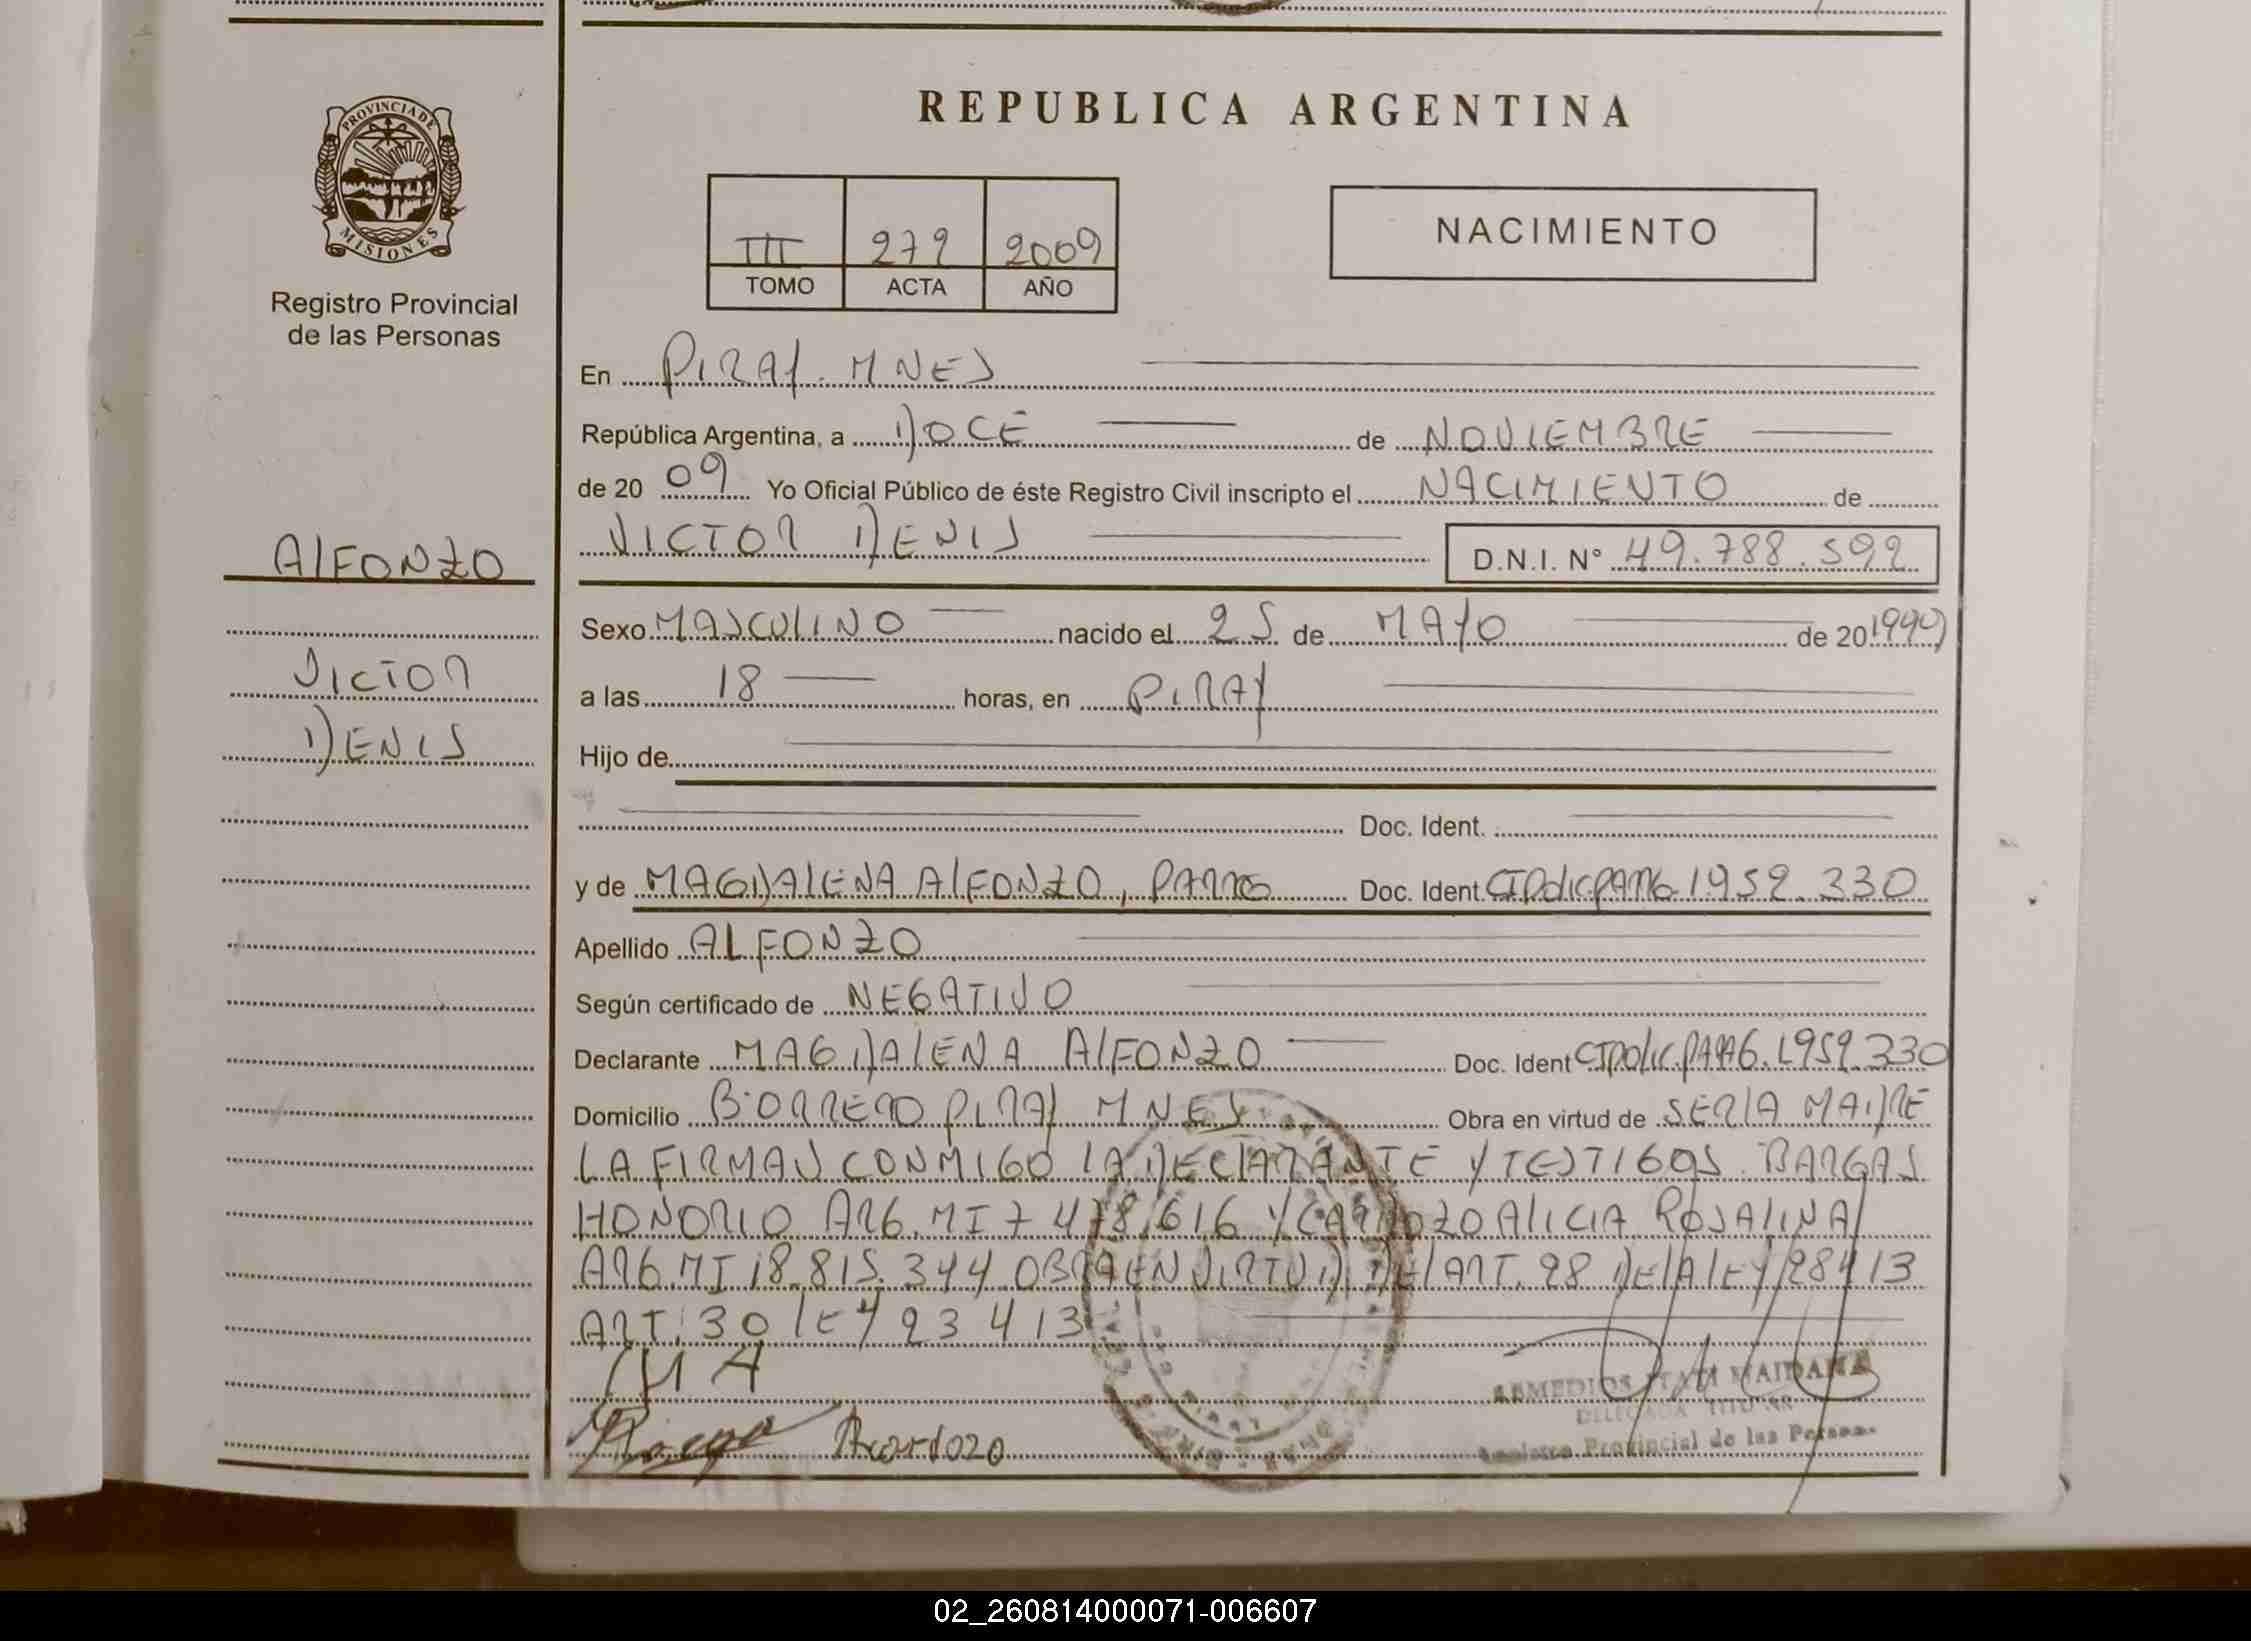 PROVINCIA DE
MISIONES
Registro Provincial
de las Personas
ALFONZO
VICTOR
DENIS
REPUBLICA ARGENTINA
III 279 2009
TOMO ACTA AÑO
NACIMIENTO
En PIRAY. MNES
República Argentina, a DOCE de NOVIEMBRE
de 20 09 Yo Oficial Público de éste Registro Civil inscripto el NACIMIENTO de
VICTOR DENIS D.N.I. N° 49.788.592
Sexo MASCULINO nacido el 25 de MAYO de 20 1990)
a las 18 horas, en PIRAY
Hijo de
Doc. Ident.
y de MAGDALENA ALFONZO, PARAG Doc. Ident. CIPolic.PARAG.1952.330
Apellido ALFONZO
Según certificado de NEGATIVO
Declarante MAGDALENA ALFONZO Doc. Ident CIPolic.PARAG.1952.330
Domicilio B:ORRERO PIRAY MNES Obra en virtud de SERLA MADRE
LA FIRMAN CONMIGO LA DECLARANTE Y TESTIGOS BARGAS
HONORIO ARG.MI 7 478.616 Y CARDOZO ALICIA ROSALINA
ARG.MI 18.815.344 OBRA EN VIRTUD DEL ART. 28 DE LA LEY 28413
ART. 30 LEY 23413
MA
Cardozo
REMEDIOS ITATI MAIDANA
DELEGADA TITULAR
Registro Provincial de las Personas
02_260814000071-006607